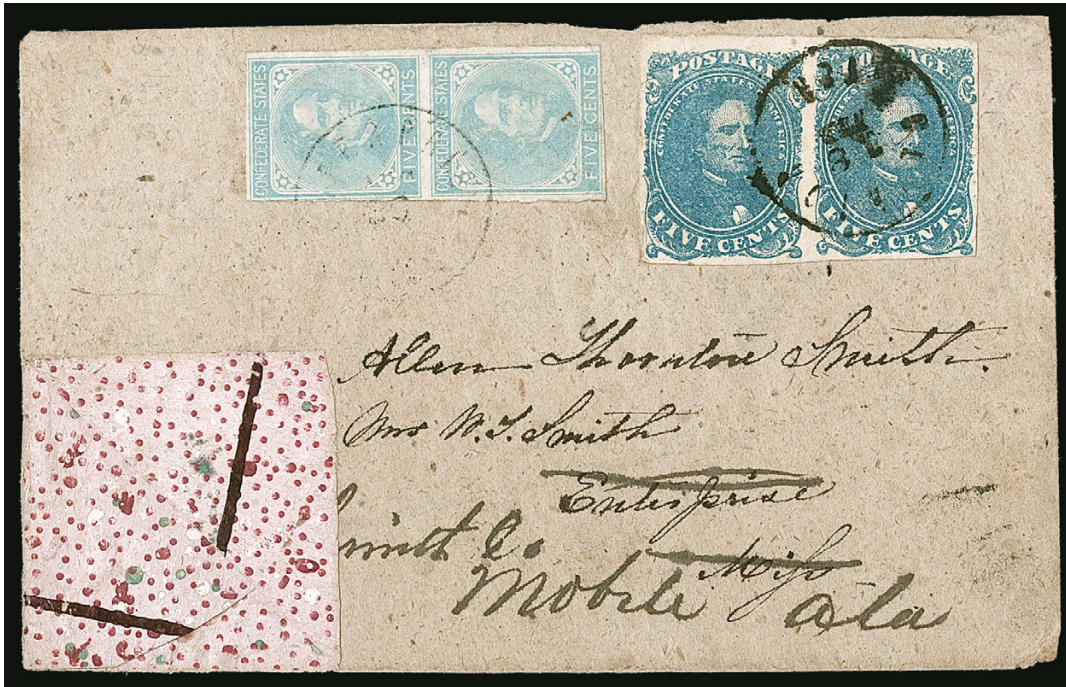 CONFEDERATE STATES
FIVE CENTS
CONFEDERATE STATES
FIVE CENTS
POSTAGE
CONFEDERATE STATES OF AMERICA
FIVE CENTS
POSTAGE
FIVE CENTS
Allen Thornton Smith
Mrs W. T. Smith
Enterprise
Miss
Mobile Ala